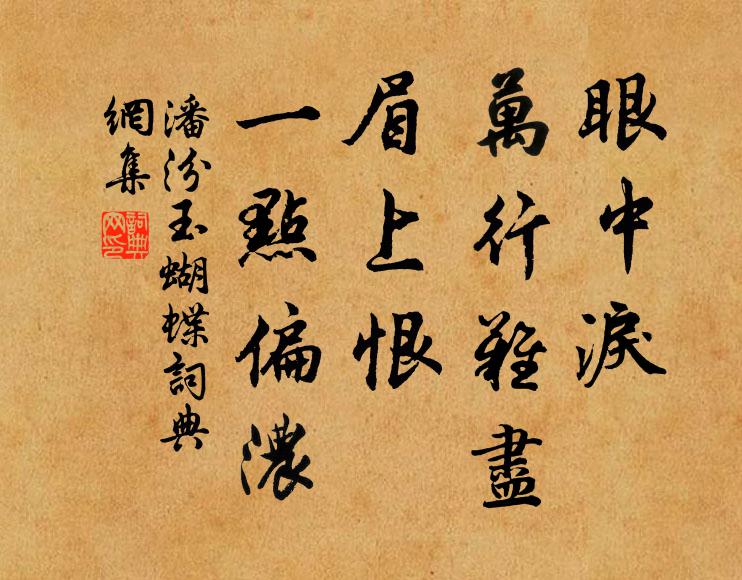 眼中淚
萬行難盡
眉上恨
一點偏濃
潘汾玉蝴蝶詞典
網集
詞典
网印